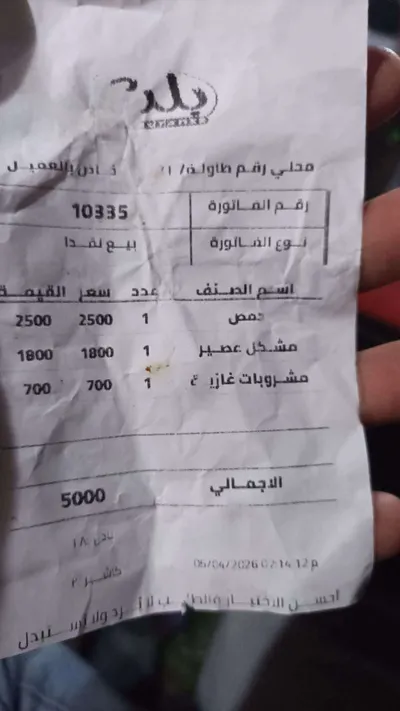 بلدي
محلي رقم طاولة/ ٢١ خاص بالعميل
رقم الفاتورة 10335
نوع الفاتورة بيع نقدا
اسم الصنف عدد سعر القيمة
حمص 1 2500 2500
مشكل عصير 1 1800 1800
مشروبات غازية 1 700 700
الاجمالي 5000
كاشير ٢
05/04/2026 02:14:12 م
أحسن الاختيار لا يرد ولا يستبدل